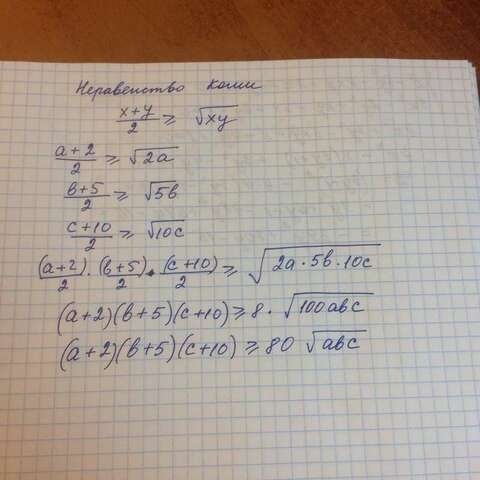 Неравенство Коши
x+y/2 ≥ √xy
a+2/2 ≥ √2a
b+5/2 ≥ √5b
c+10/2 ≥ √10c
(a+2)/2 · (b+5)/2 · (c+10)/2 ≥ √2a·5b·10c
(a+2)(b+5)(c+10) ≥ 8·√100abc
(a+2)(b+5)(c+10) ≥ 80 √abc